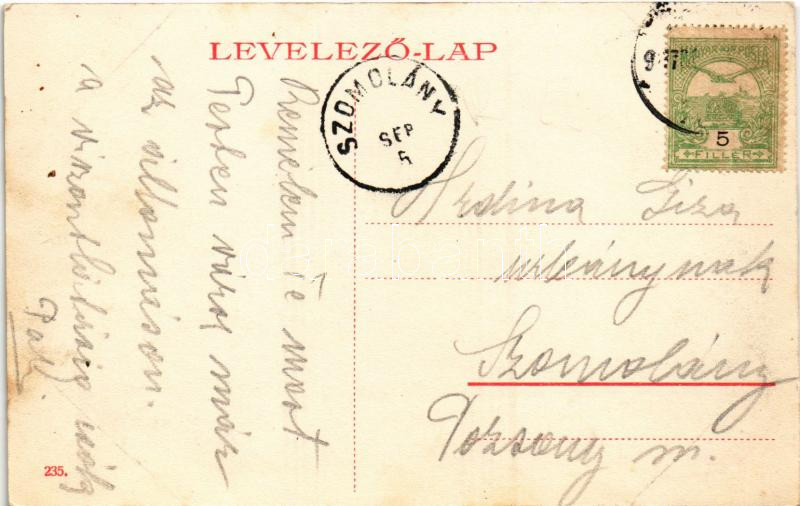 LEVELEZŐ-LAP
SZOMOLÁNY
SEP
5
MAGYAR KIR. POSTA
5
FILLÉR
Remélem Te most
Pesten vársz már
az villomáson.
a viszontlátásig csók
Pali.
Hrdina Giza
urleánynak
Szomolány
Pozsony m.
235.